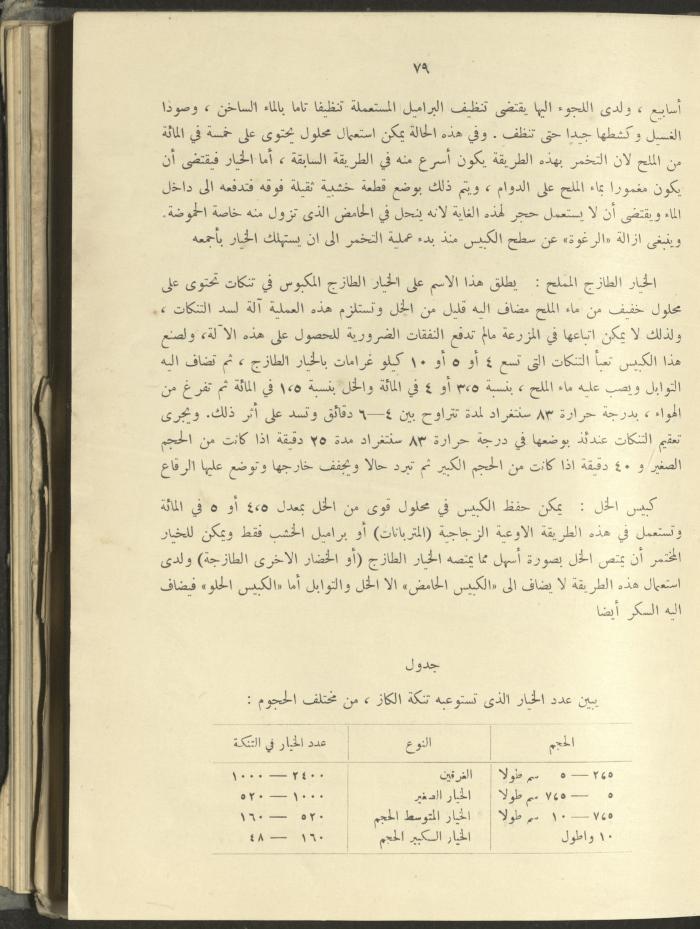 ٧٩
أسابيع ، ولدى اللجوء اليها يقتضى تنظيف البراميل المستعملة تنظيفا تاما بالماء الساخن ، وصودا
الغسيل وكشطها جيدا حتى تنظف . وفي هذه الحالة يمكن استعمال محلول يحتوى على خمسة في المائة
من الملح لان التخمر بهذه الطريقة يكون أسرع منه في الطريقة السابقة ، أما الخيار فيقتضى أن
يكون مغمورا بماء الملح على الدوام ، ويتم ذلك بوضع قطعة خشبية ثقيلة فوقه فتدفعه الى داخل
الماء ويقتضى أن لا يستعمل حجر لهذه الغاية لانه ينحل في الحامض الذى تزول منه خاصة الحموضة.
وينبغى ازالة «الرغوة» عن سطح الكبيس منذ بدء عملية التخمر الى ان يستهلك الخيار بأجمعه
الخيار الطازج المملح : يطلق هذا الاسم على الخيار الطازج المكبوس في تنكات تحتوى على
محلول خفيف من ماء الملح مضاف اليه قليل من الخل وتستلزم هذه العملية آلة لسد التنكات ،
ولذلك لا يمكن اتباعها في المزرعة مالم تدفع النفقات الضرورية للحصول على هذه الآلة، ولصنع
هذا الكبيس تعبأ التنكات التى تسع ٤ أو ٥ أو ١٠ كيلو غرامات بالخيار الطازج ، ثم تضاف اليه
التوابل ويصب عليه ماء الملح ، بنسبة ٣،٥ أو ٤ في المائة والخل بنسبة ١،٥ في المائة ثم تفرغ من
الهواء ، بدرجة حرارة ٨٣ سنتغراد لمدة تتراوح بين ٤—٦ دقائق وتسد على أثر ذلك. ويجرى
تعقيم التنكات عندئذ بوضعها في درجة حرارة ٨٣ سنتغراد مدة ٢٥ دقيقة اذا كانت من الحجم
الصغير و ٤٠ دقيقة اذا كانت من الحجم الكبير ثم تبرد حالا ويجفف خارجها وتوضع عليها الرقاع
كبيس الخل : يمكن حفظ الكبيس في محلول قوى من الخل بمعدل ٤،٥ أو ٥ في المائة
وتستعمل في هذه الطريقة الاوعية الزجاجية (المتربانات) أو براميل الخشب فقط ويمكن للخيار
المختمر أن يمتص الخل بصورة أسهل مما يمتصه الخيار الطازج (أو الخضار الاخرى الطازجة) ولدى
استعمال هذه الطريقة لا يضاف الى «الكبيس الحامض» الا الخل والتوابل أما «الكبيس الحلو» فيضاف
اليه السكر أيضا
جدول
يبين عدد الخيار الذى تستوعبه تنكة الكاز ، من مختلف الحجوم :
الحجم النوع عدد الخيار في التنكة
٢،٥ — ٥ سم طولا الغرقين ٢٤٠٠ — ١٠٠٠
٥ — ٧،٥ سم طولا الخيار الصغير ١٠٠٠ — ٥٢٠
٧،٥ — ١٠ سم طولا الخيار المتوسط الحجم ٥٢٠ — ١٦٠
١٠ واطول الخيار الكبير الحجم ١٦٠ — ٤٨